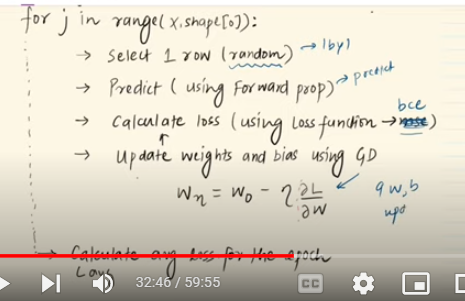 for j in range(X.shape[0]):
→ Select 1 row (random) → 1by1
→ Predict (using Forward prop) → predict
→ Calculate loss (using Loss function → mse) bce
→ Update weights and bias using GD
Wn = Wo - η ∂L/∂W ← 9 w,b
upd
→ Calculate avg Loss for the epoch
32:46 / 59:55
CC